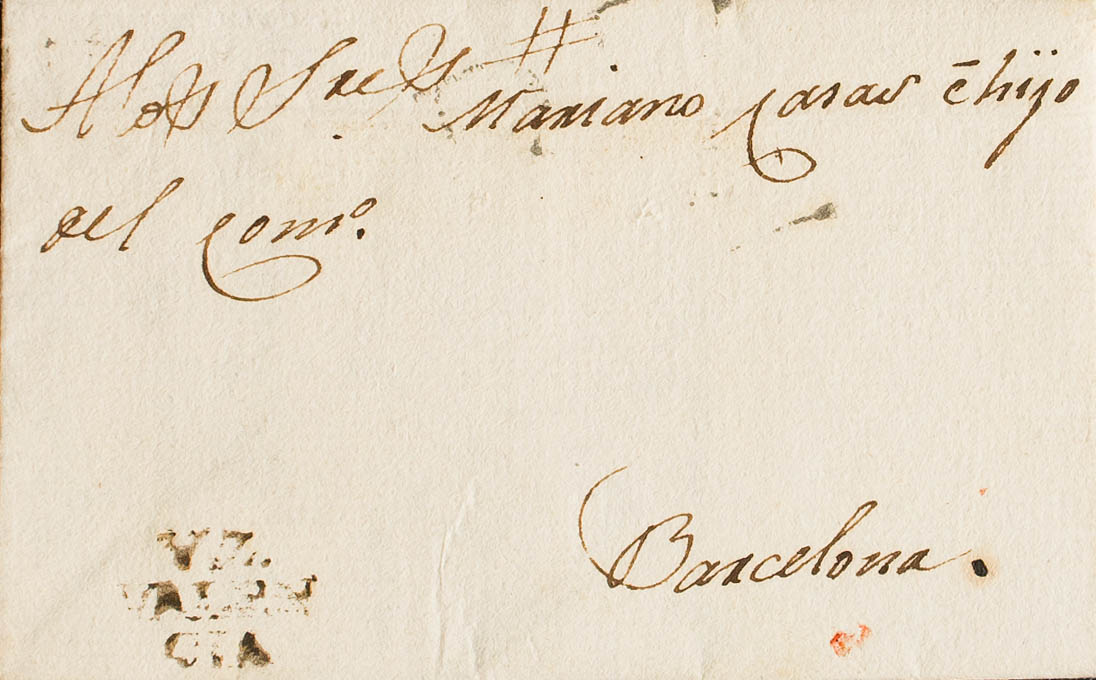 A los Sres Mariano Casas ē hijo
del Comº.
Barcelona.
VALEN
CIA